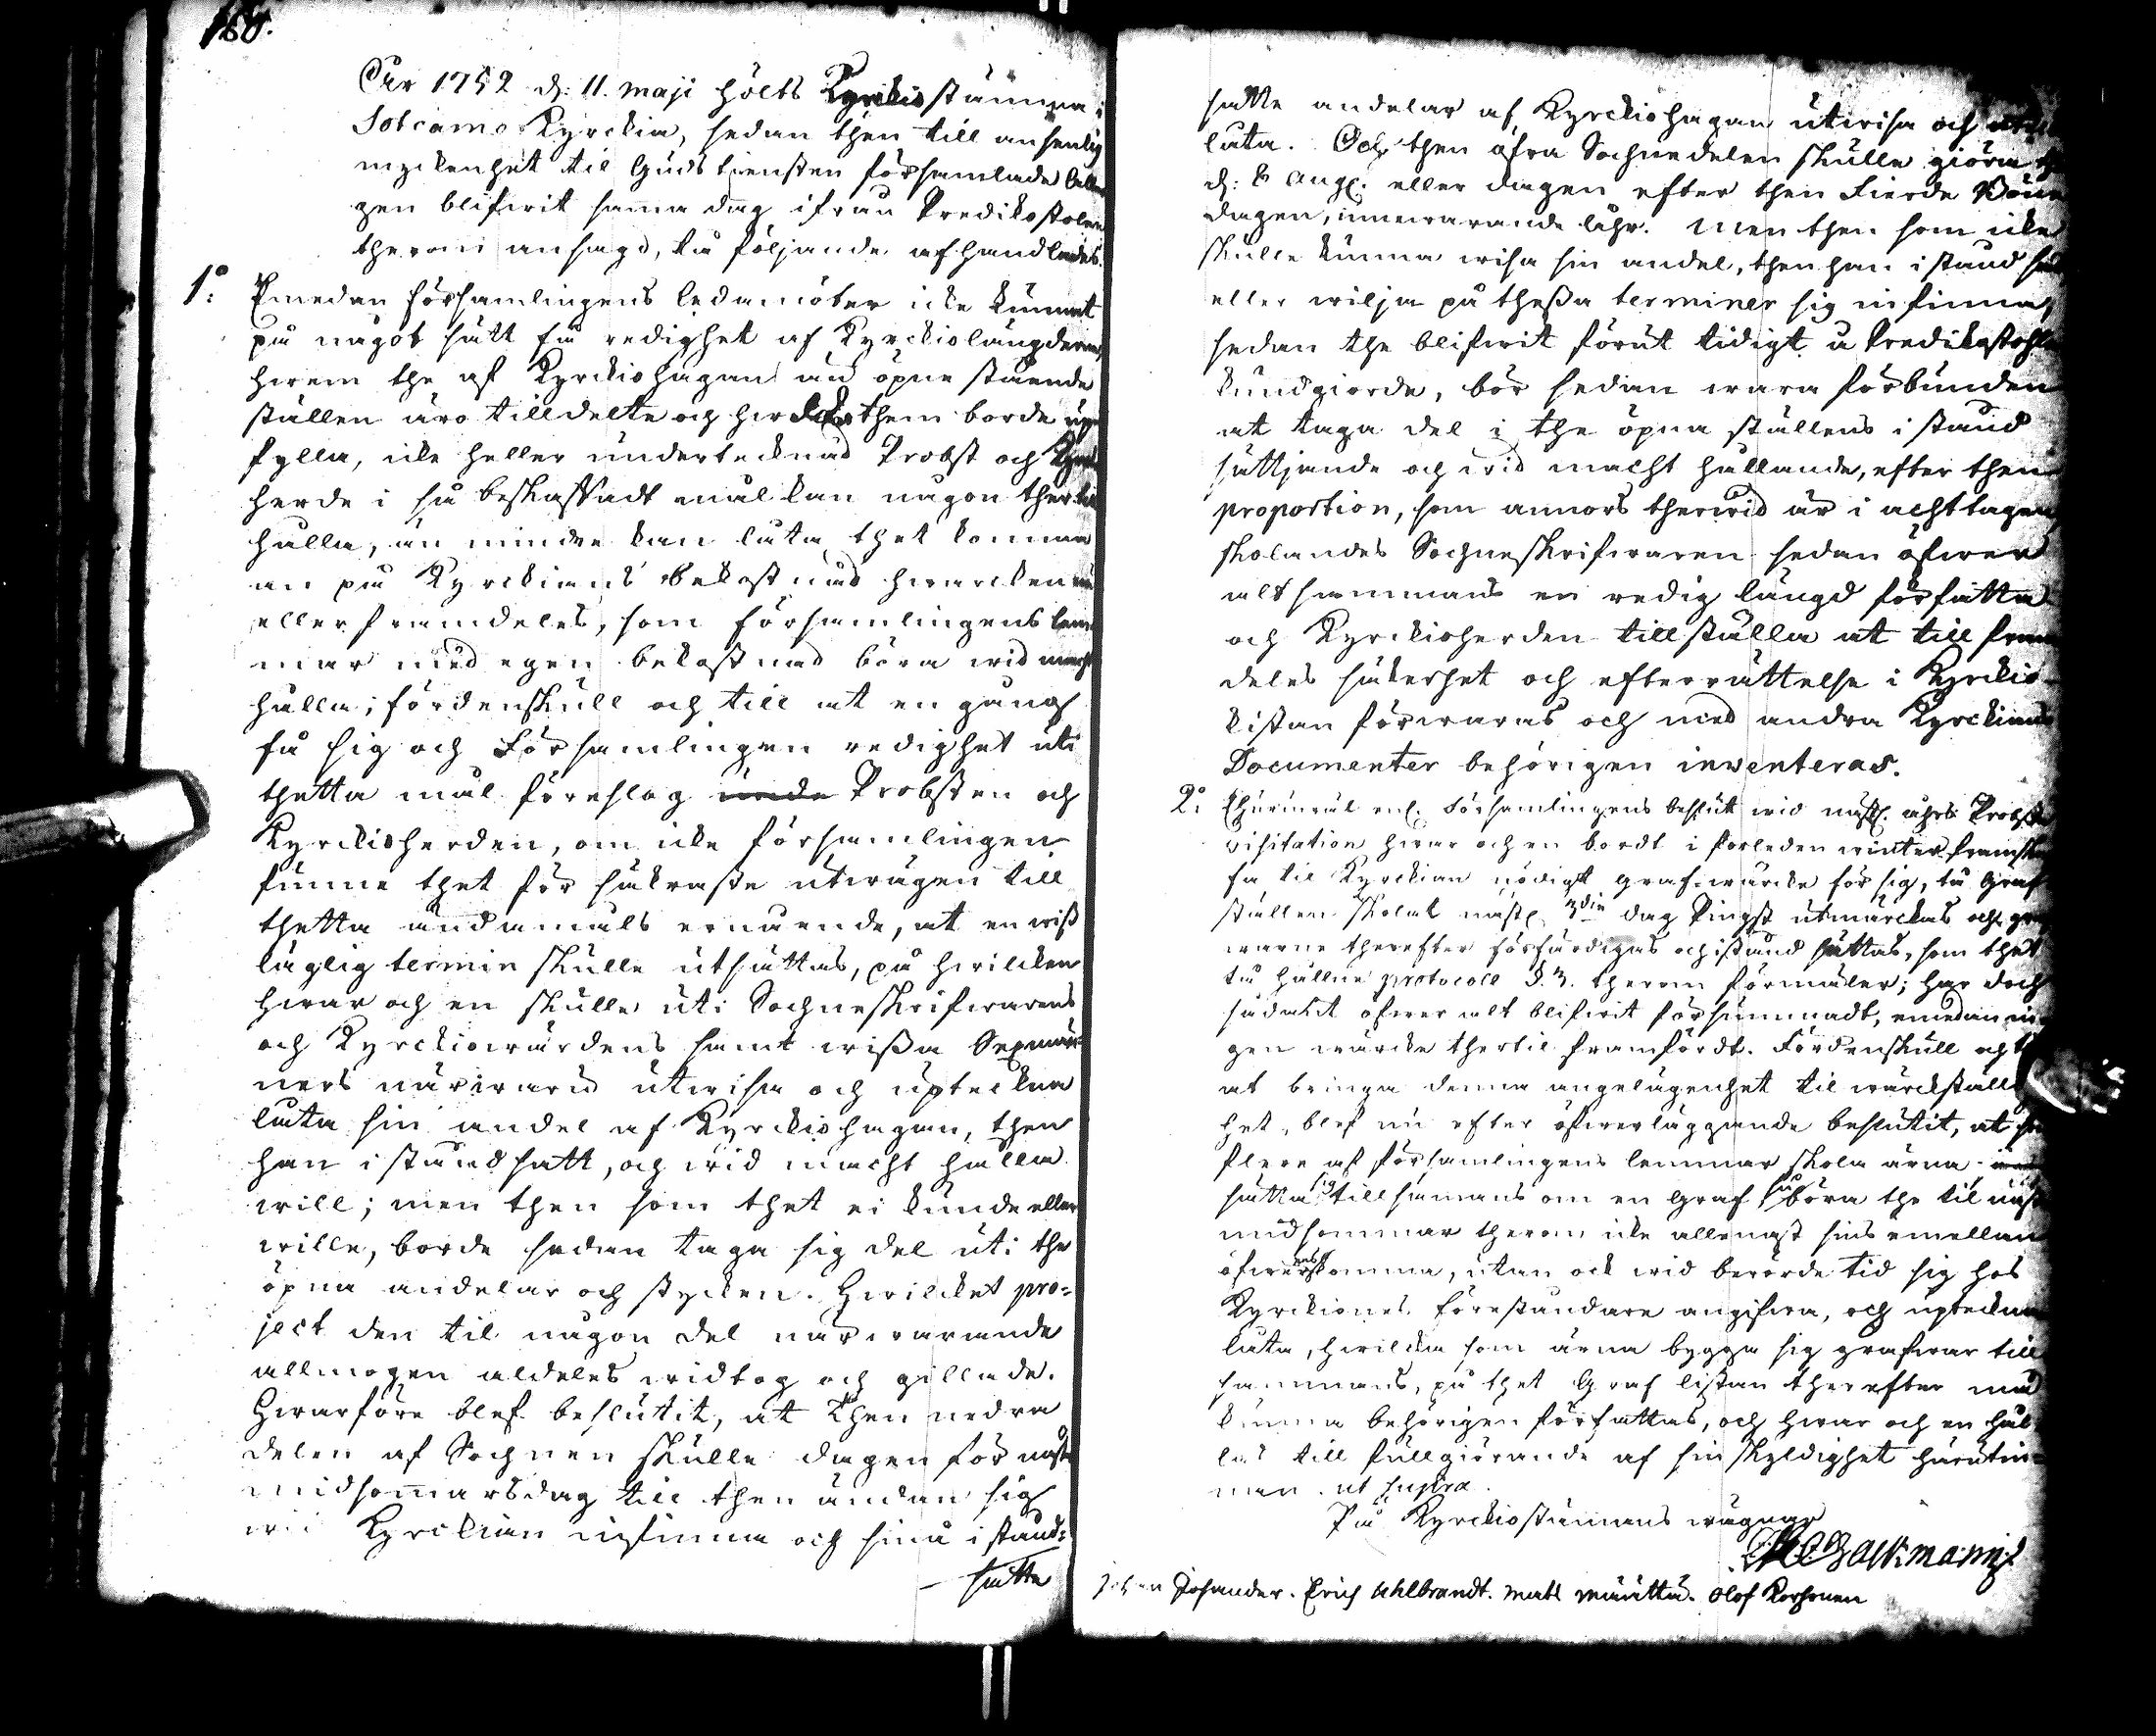 180.
Åhr 1752 d: 11. Maji hölts Kyrckiostämma i
Sotcamo Kyrckia, sedan then till ansenlig
myckenhet til Gudstiensten församlade
gen blifwit samma dag ifrån Predikostolen
therom ansagd, tå följande afhandlades.
1:o Emedan församlingens ledamöter icke kunnat
på något sätt få redighet af Kyrckiolängderne,
hwem the af Kyrckiohagan än öpne stående
ställen äro tilldelte och hwilcka them borde up
fylla, icke heller undertecknad Probst och Kyrckio
herde i så beskaffadt mål kan någon ther til
hålla, än mindre kan låta thet komma
an på Kyrckians bekostnad hwarcken nu
eller framdeles, som församlingens lem
mar med egen bekostnad böra wid macht
hålla; fördenskull och till at en gång
få sig och Församlingen redighet uti
thetta mål föreslog Probsten och
Kyrckioherden, om icke församlingen
funne thet för säkraste utwägen till
thetta ändamåls ernående, at en wiss
läglig termin skulle utsättas, på hwilcken
hwar och en skulle uti Sochneskrifwarens
och Kyrckiowärdens samt wissa Sexmän-
ners närwaru utwisa och upteckna
låta sin andel af Kyrckiohagan, then
han i stånd satt, och wid macht hålla
will; men then som thet ei kunde eller
wille, borde sedan taga sig del uti the
öpna andelar och stycken. Hwilcket pro-
ject den til någon del närwarande
allmogen aldeles widtog och gillade.
Hwarföre blef beslutit, at then nedra
delen af Sochnen skulle dagen för nästa
midsommarsdag till then ändan sig
wid Kyrckian infinna och sina i stånd-
satte
satte andelar af Kyrckiohagan utwisa och
låta. Och then öfra Sochnedelen skulle giöra
d: 8 Aug. eller dagen efter then Fierde Böne
dagen, innewarande åhr. Men then som icke
skulle kunna wisa sin andel, then han i stånd
eller wilja på thessa terminer sig infinna,
sedan the blifwit förut tidigt a Predikostohlen
kundgiorde, bör sedan wara förbunden
at taga del i the öpna ställens i stånd
sättjande och wid macht hållande, efter then
proportion, som annors therwid är i acht tagen,
skolandes Sochneskrifwaren sedan öfwer
alt sammans en redig längd författa
och Kyrckioherden tillställa at till fram
deles säkerhet och efterrättelse i Kyrckio-
kistan förwaras och med andra Kyrckians
Documenter behörigen inventeras.
2:o Ehuruwäl enl. Församlingens beslut wid nästl. åhrs Probste
visitation hwar och en bordt i förleden winter framska
fa til Kyrckian nödigt grafwärcke för sig, tå Graf
ställen skolat nästl. 3die dag Pingst utmärckas och graf
warne therefter förfärdigas och i stånd sättas, som thet
tå hållne protocoll §. 3. therom förmäler; har doch
sådant öfwer alt blifwit försummadt, emedan in-
gen wärcke thertil framfördt. Fördenskull och
at bringa denna angelägenhet til wärckställ
het, blef nu efter öfwerläggande beslutit, at
flere af församlingens lemmar skola ärna
sätta sig tillsamans om en graf så böra the til näst
midsommar therom icke allenast sins emellan
öfwerenskomma, utan ock wid berörde tid sig hos
Kyrckiones föreståndare angifwa, och upteckna
låta, hwilcka som ärna bygga sig grafwar till
sammans, på thet Graf listan therefter må
kunna behörigen författas, och hwar och en hål-
las till fullgiörande af sin skyldighet härutin-
nan. ut supra.
På Kyrckiostämmans wägnar
Backmann
Johan Johander. Erich Uhlbrandt. Mats Määttä. Olof Korhonen